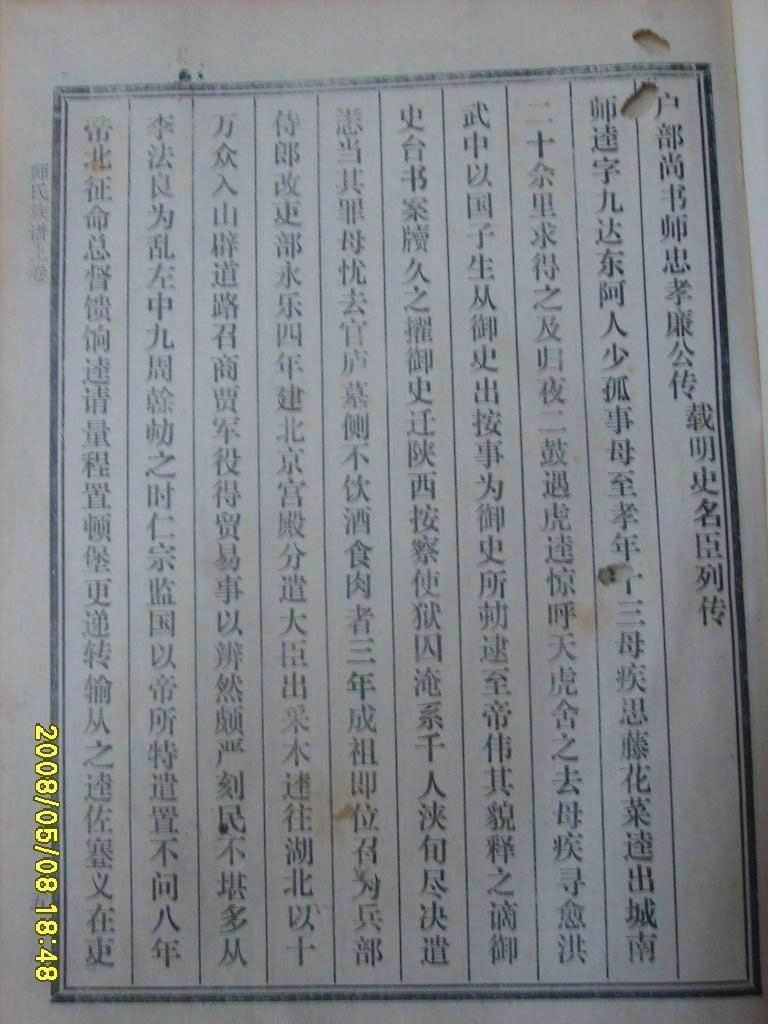 户部尚书师忠孝廉公传 载明史名臣列传
师逵字九达东阿人少孤事母至孝年十三母疾思藤花菜逵出城南
二十余里求得之及归夜二鼓遇虎逵惊呼天虎舍之去母疾寻愈洪
武中以国子生从御史出按事为御史所劾逮至帝伟其貌释之谪御
史台书案牍久之擢御史迁陕西按察使狱囚淹系千人浃旬尽决遣
悉当其罪母忧去官庐墓侧不饮酒食肉者三年成祖即位召为兵部
侍郎改吏部永乐四年建北京宫殿分遣大臣出采木逵往湖北以十
万众入山辟道路召商贾军役得贸易事以辨然颇严刻民不堪多从
李法良为乱左中九周榦劾之时仁宗监国以帝所特遣置不问八年
帝北征命总督馈饷逵请量程置顿堡更递转输从之逵佐蹇义在吏
师氏族谱上卷
2008/05/08 18:48